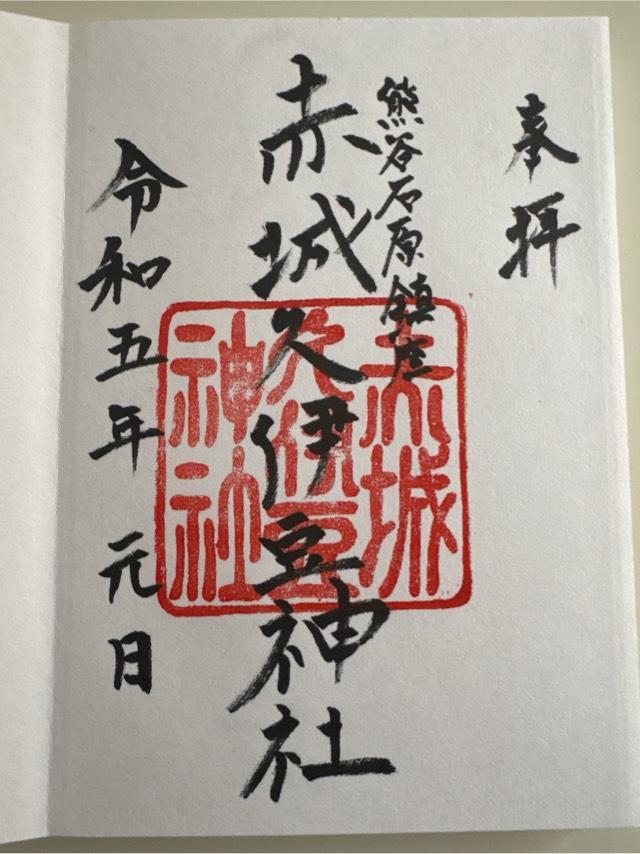 奉拝
熊谷石原鎮座
赤城久伊豆神社
令和五年 元日
赤城
久伊豆
神社